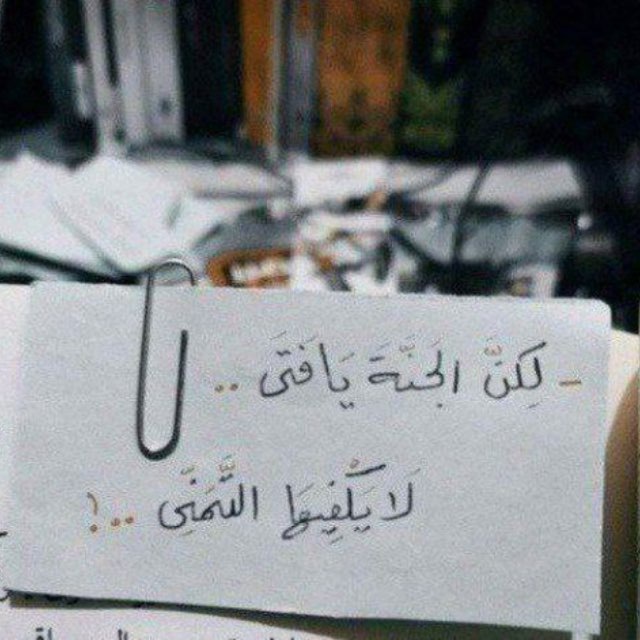 - لَكِنَّ الجَنَّةَ يَا فَتَى ..
لَا يَكْفِيهَا التَّمَنِّى ..!